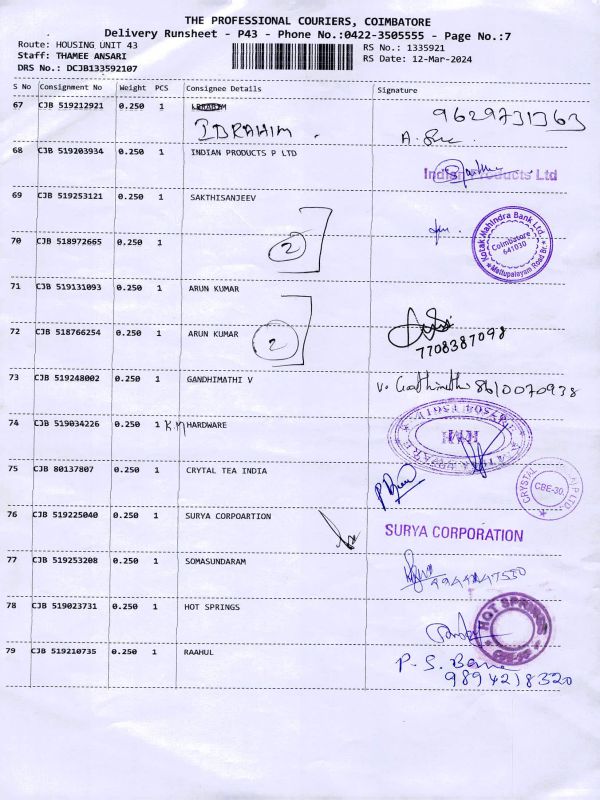 THE PROFESSIONAL COURIERS, COIMBATORE
Delivery Runsheet - P43 - Phone No.:0422-3505555 - Page No.:7
Route: HOUSING UNIT 43
RS No.: 1335921
Staff: THAMEE ANSARI
RS Date: 12-Mar-2024
DRS No.: DCJB133592107
S No Consignment No Weight PCS Consignee Details Signature
67 CJB 519212921 0.250 1
IBRAHIM.
9629731363
68 CJB 519203934 0.250 1 INDIAN PRODUCTS P LTD
Indian Products Ltd
69 CJB 519253121 0.250 1 SAKTHISANJEEV
Kotak Mahindra Bank Ltd.
Coimbatore
641030
Mettupalayam Road Br.
70 CJB 518972665 0.250 1
2
71 CJB 519131093 0.250 1 ARUN KUMAR
72 CJB 518766254 0.250 1 ARUN KUMAR
2
7708387098
73 CJB 519248002 0.250 1 GANDHIMATHI V
V. Gandhimathi 8610070938
74 CJB 519034226 0.250 1 KM HARDWARE
75 CJB 80137807 0.250 1 CRYTAL TEA INDIA
CRYSTAL
CBE-30
LTD
76 CJB 519225040 0.250 1 SURYA CORPOARTION
SURYA CORPORATION
77 CJB 519253208 0.250 1 SOMASUNDARAM
78 CJB 519023731 0.250 1 HOT SPRINGS
HOT SPRINGS
79 CJB 519210735 0.250 1 RAAHUL
P. S.
9894218320